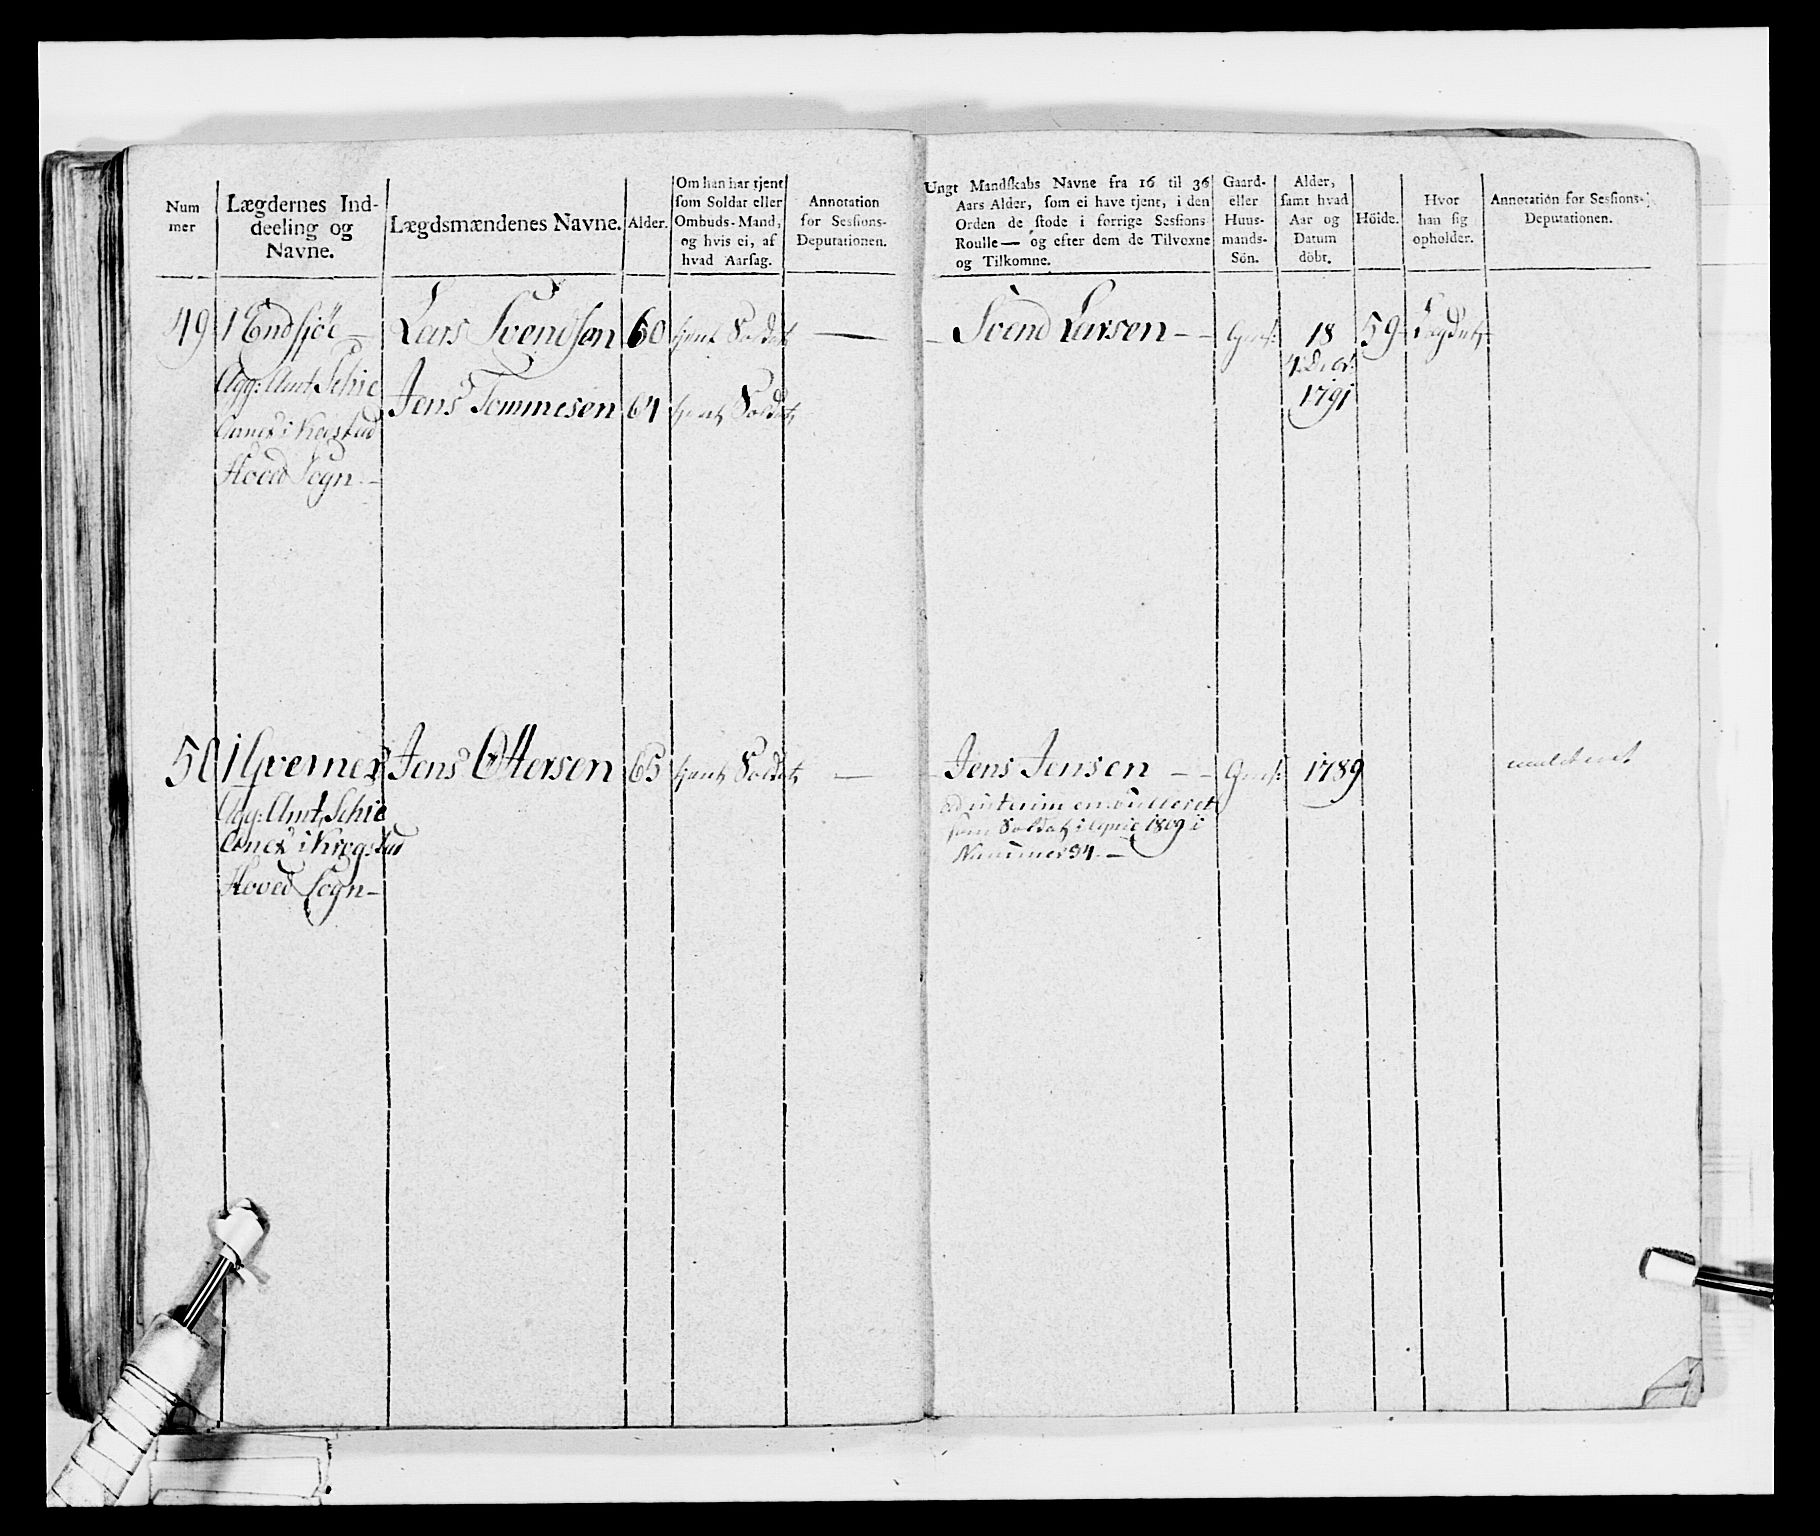 Num
mer
Lægdernes Ind-
deeling og
Navne.
Lægdsmændenes Navne.
Alder.
Om han har tjent
som Soldat eller
Ombuds-Mand,
og hvis ei, af
hvad Aarsag.
Annotation
for Sessions-
Deputationen.
Ungt Mandskabs Navne fra 16 til 36
Aars Alder, som ei have tjent, i den
Orden de stode i forrige Sessions-
Roulle— og efter dem de Tilvoxne
og Tilkomne.
Gaard-
eller
Huus-
mands-
Sön.
Alder,
samt hvad
Aar og
Datum
döbt.
Höide.
Hvor
han sig
opholder.
Annotation for Sessions-
Deputationen.
49 1 Endsjöe — Lars Svendsen 60 tjent Soldat — Svend Larsen — 18 59 Lægdet
Agg: Amt, Schie Jens Tommesen 64 tjent Soldat 4 Decr:
i Kregstad 1791
Hoved Sogn —
50 1 Jens Ottersen 65 tjent Soldat — Jens Jensen — 1789
Agg: Amt, Schie ad interim enroulleret
i Kregstad som Soldat i 1809 i
Hoved Sogn — Nummer 94. —